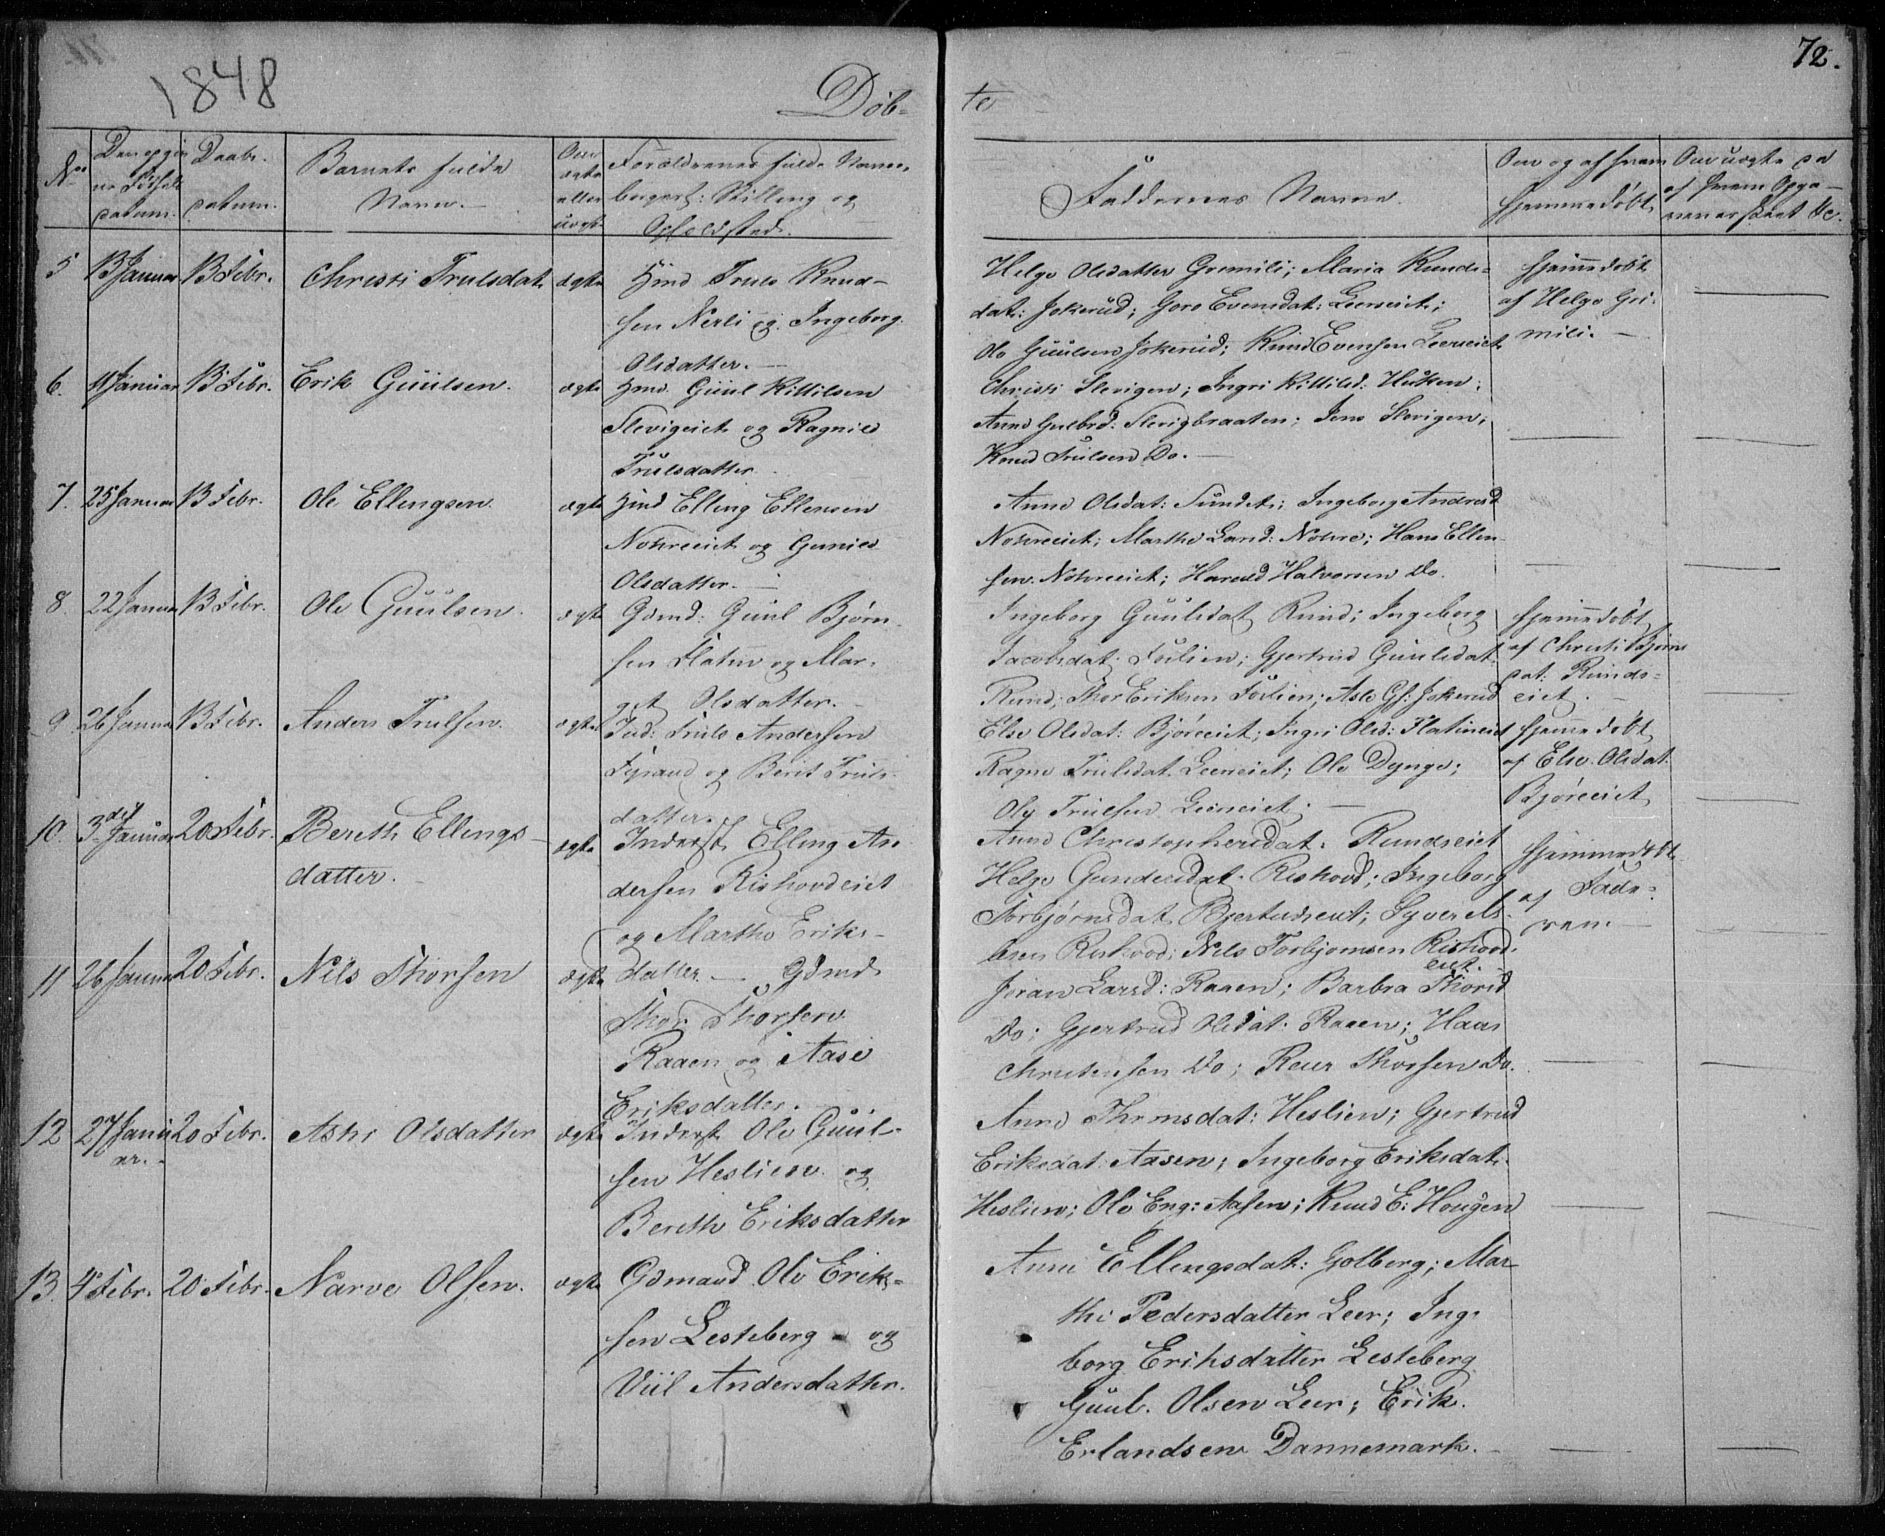 72.
1848
Døb-
te
No
Den opgiv
ne Fødsels
datum.
Daabs-
datum.
Barnets fulde
Navn.
Om
ægte
eller
uægte
Forældrenes fulde Navne,
borgerl: Stilling og
Opholdsted.
Faddernes Navne.
Om og af hvem
hjemmedøbt
Om uægte da
af hvem Opga-
ven er skeet &c.
5 13 Januar 13 Febr. Christi Trulsdat. ægte
Hmd Truls Knud-
sen Nerli og Ingeborg
Olsdatter.
Helge Olsdatter Gremili; Maria Knuds-
dat: Jokerud; Goro Evensdat: Leereiet;
Ole Guulsen Jokerud; Knud Evensen Leereiet
hjemmedøbt
af Helge Gri-
mili.
6. 11 Januar 13 Febr. Erik Guulsen. ægte
Hmd. Guul Kittilsen
Slevigeiet og Ragnild
Trulsdatter
Christi Slevigen; Ingri Kittilsd: Huken;
Anne Gulbrd: Slevigbraaten; Jens Slevigen;
Knud Trulsen Do.
7. 25 Januar 13 Febr. Ole Ellengsen. ægte
Hmd Elling Ellensen
Nohreeiet og Gunild
Olsdatter.
Anne Olsdat: Sundet; Ingeborg Andresd
Nohreeiet; Marthe Lard: Nohre; Hans Ellen-
sen Nohreeiet; Harald Halvorsen Do.
8. 22 Januar 13 Febr. Ole Guulsen. ægte
Gdmd: Guul Bjørn-
sen Flatin og Mar-
get Olsdatter.
Ingeborg Guulsdat Rund; Ingeborg
Jacobsdat: Foslien; Gjertrud Guulsdat.
Rund; Thor Eriksen Foslien; Asle Gs: Jokerud
hjemmedøbt
af Christi Bjørns
dat: Runds-
eiet.
9. 26 Januar 13 Febr. Anders Trulsen. ægte
Ind: Truls Andersen
Fyrand og Berit Truls-
datter.
Else Olsdat: Bjøreeiet; Ingri Olsd: Flatineiet
Ragne Trulsdat. Leereiet; Ole Dynge;
Ole Trulsen Leereiet.
hjemmedøbt
af Else Olsdat.
Bjøreeiet
10. 3die Januar 20 Febr. Bereth Ellings-
datter. ægte
Inderst Elling An-
dersen Rishovdeiet
og Marthe Eriks-
datter.
Anne Christophersdat: Rundseiet
Helge Gundersdat. Rishovd; Ingeborg
Torbjørnsdat. Bjertudseiet; Syver El-
lensen Rishovd; Nils Torbjørnsen Rishovd-
eiet
hjemmedøbt
af Fade-
ren
11 26 Januar 20 Febr. Nils Thorsen ægte
Gdmd.
Thor Thorsen
Raaen og Aase
Eriksdatter.
Jøran Larsd: Raaen; Barbra Thorsd
Do; Gjertrud Olsdat. Raaen; Haas
Christensen Do; Reier Thorsen Do.
12 27 Janu-
ar. 20 Febr. Aste Olsdatter ægte
Inderst Ole Guul-
sen Heslien og
Bereth Eriksdatter
Anne Thomsdat: Heslien; Gjertrud
Eriksdat: Aasen; Ingeborg Eriksdat.
Heslien; Ole Eng: Aasen; Knud E: Hougen
13. 4 Febr. 20 Febr. Narve Olsen. ægte
Gdmand Ole Erik-
sen Lesteberg og
Viil Andersdatter.
Anne Ellengsdat: Golberg; Mar-
the Pedersdatter Leer; Inge-
borg Eriksdatter Lesteberg
Guul. Olsen Leer; Erik.
Erlandsen Dannemark.